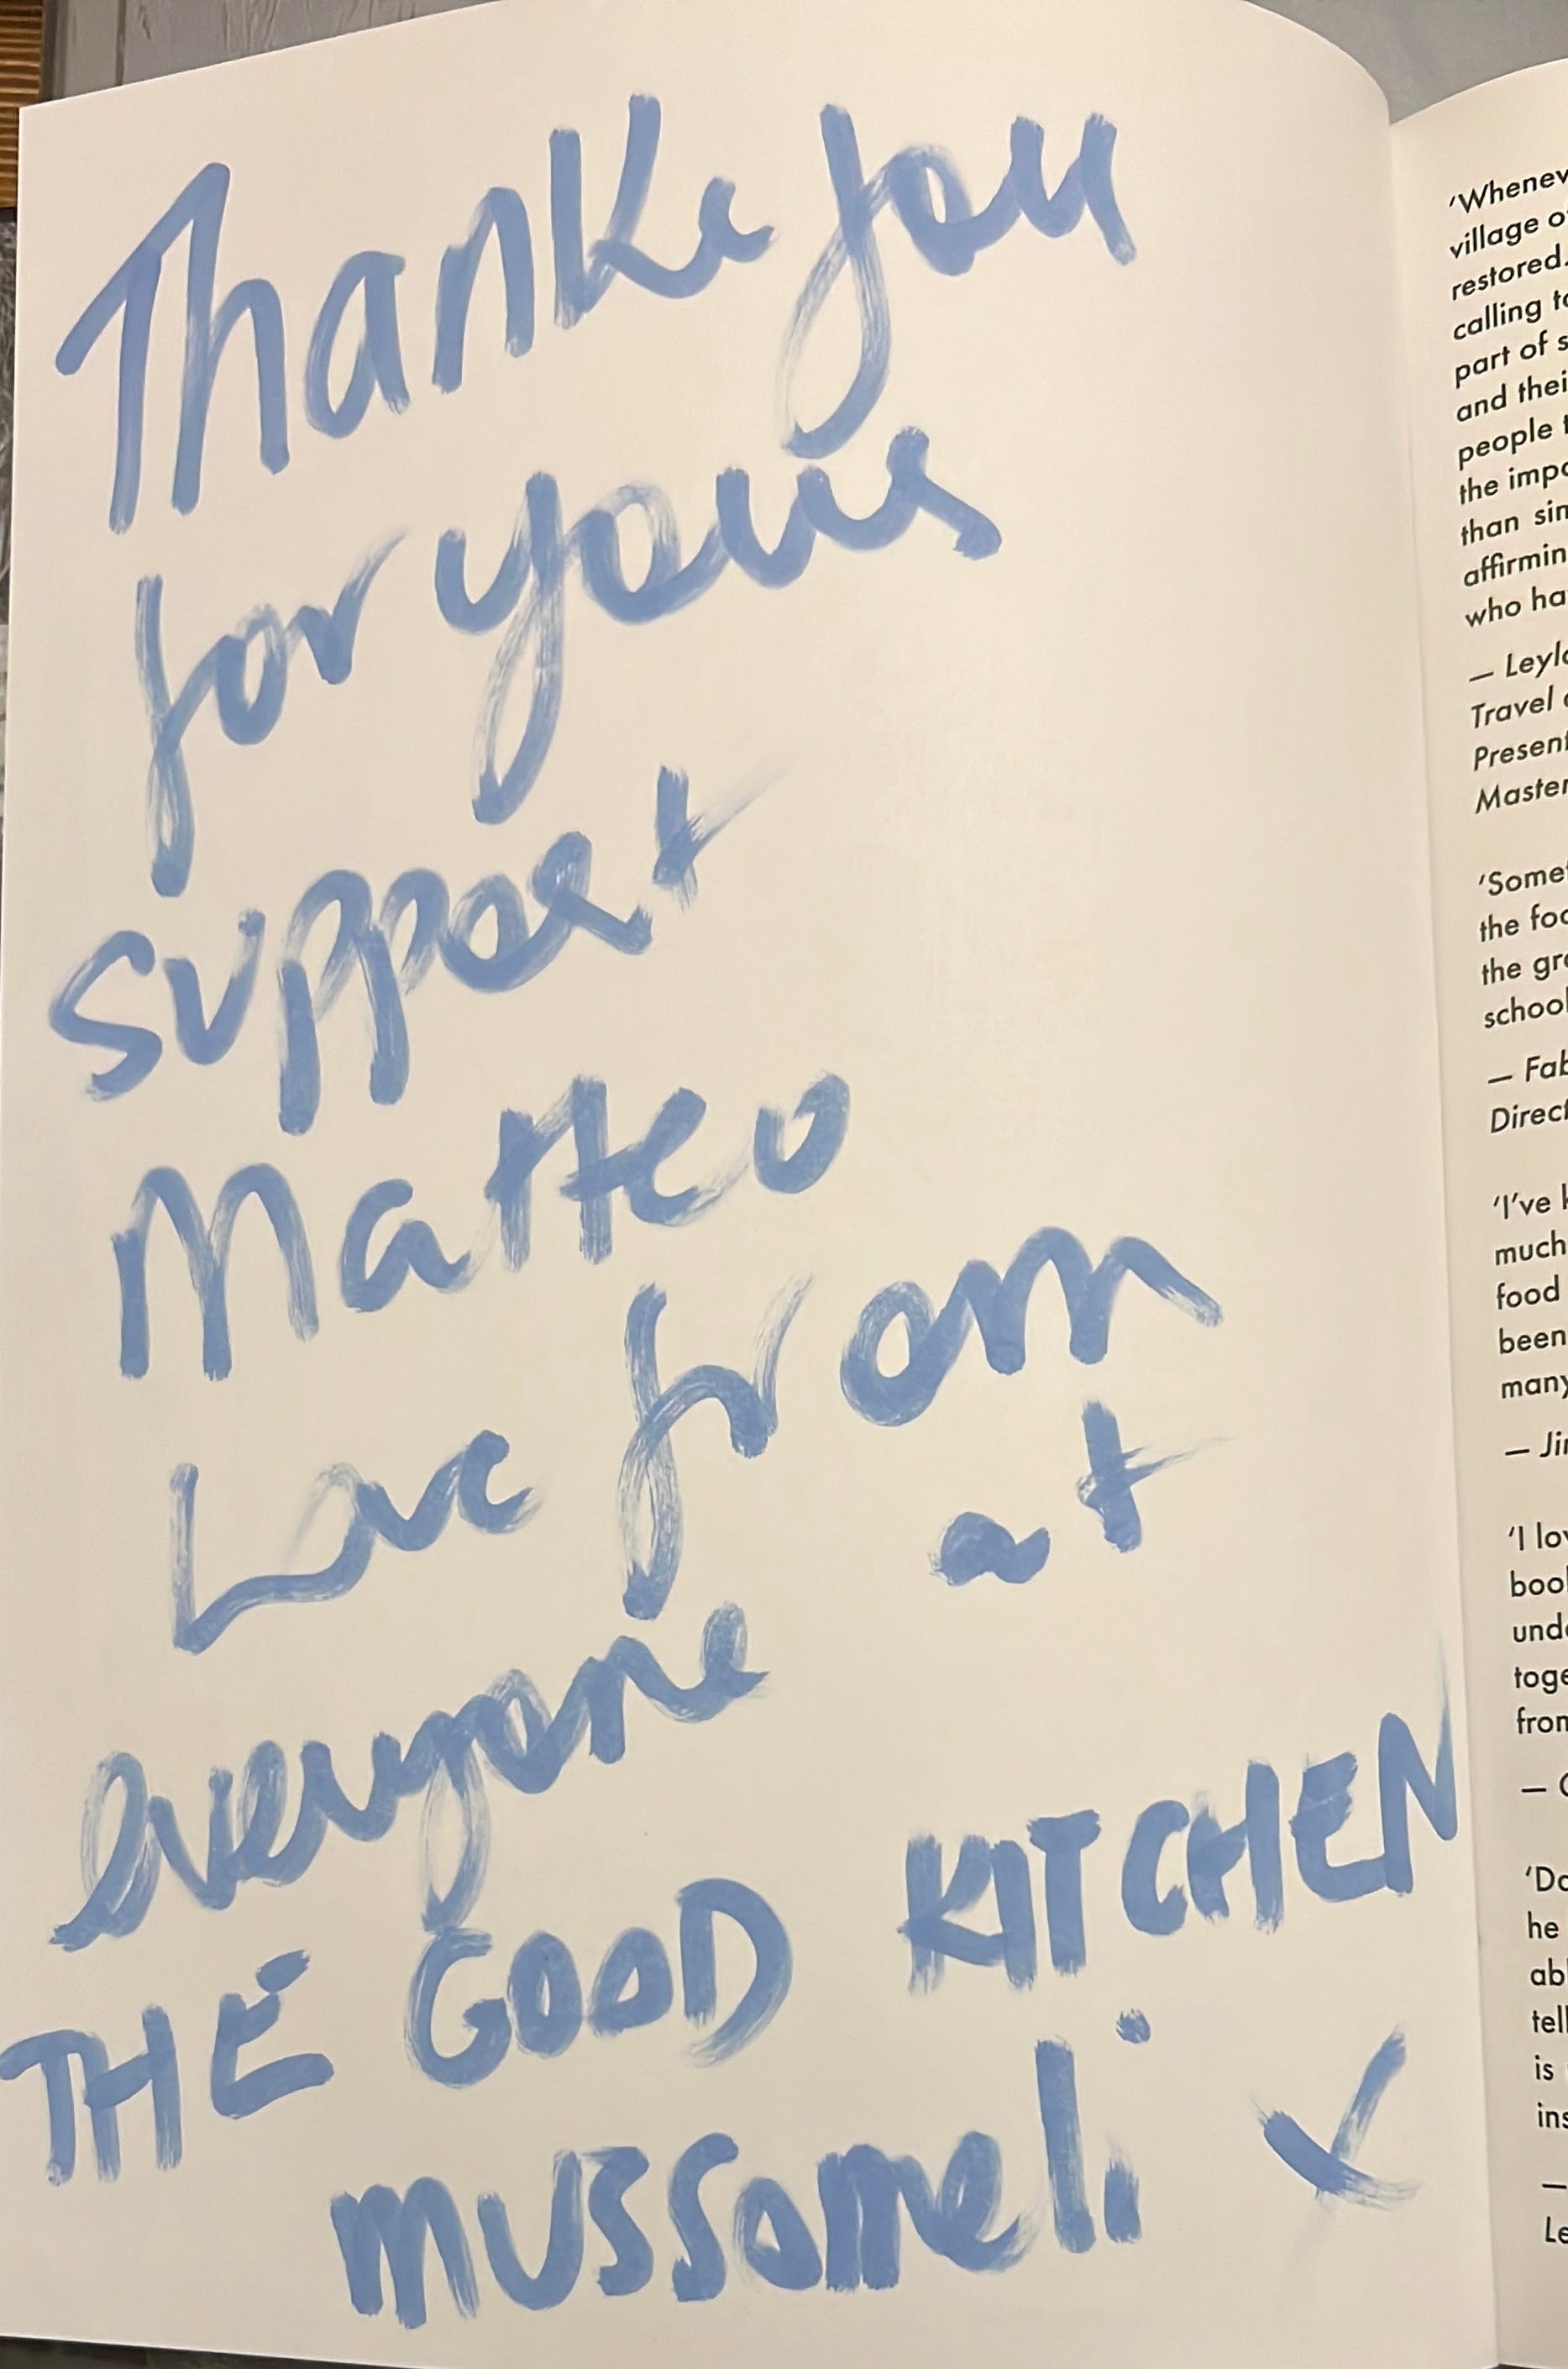 Thank you
for your
support
Matteo
Love from
everyone at
THE GOOD KITCHEN
MUSSomeli X
'Whenev
village o
restored.
calling to
part of s
and thei
people t
the impo
than sin
affirmin
who ha
— Leyla
Travel
Present
Master
'Some
the foo
the gr
school
— Fab
Direct
'I've k
much
food
been
many
— Ji
'I lov
book
unde
toge
from
—
'Do
he
ab
tell
is
ins
—
Le